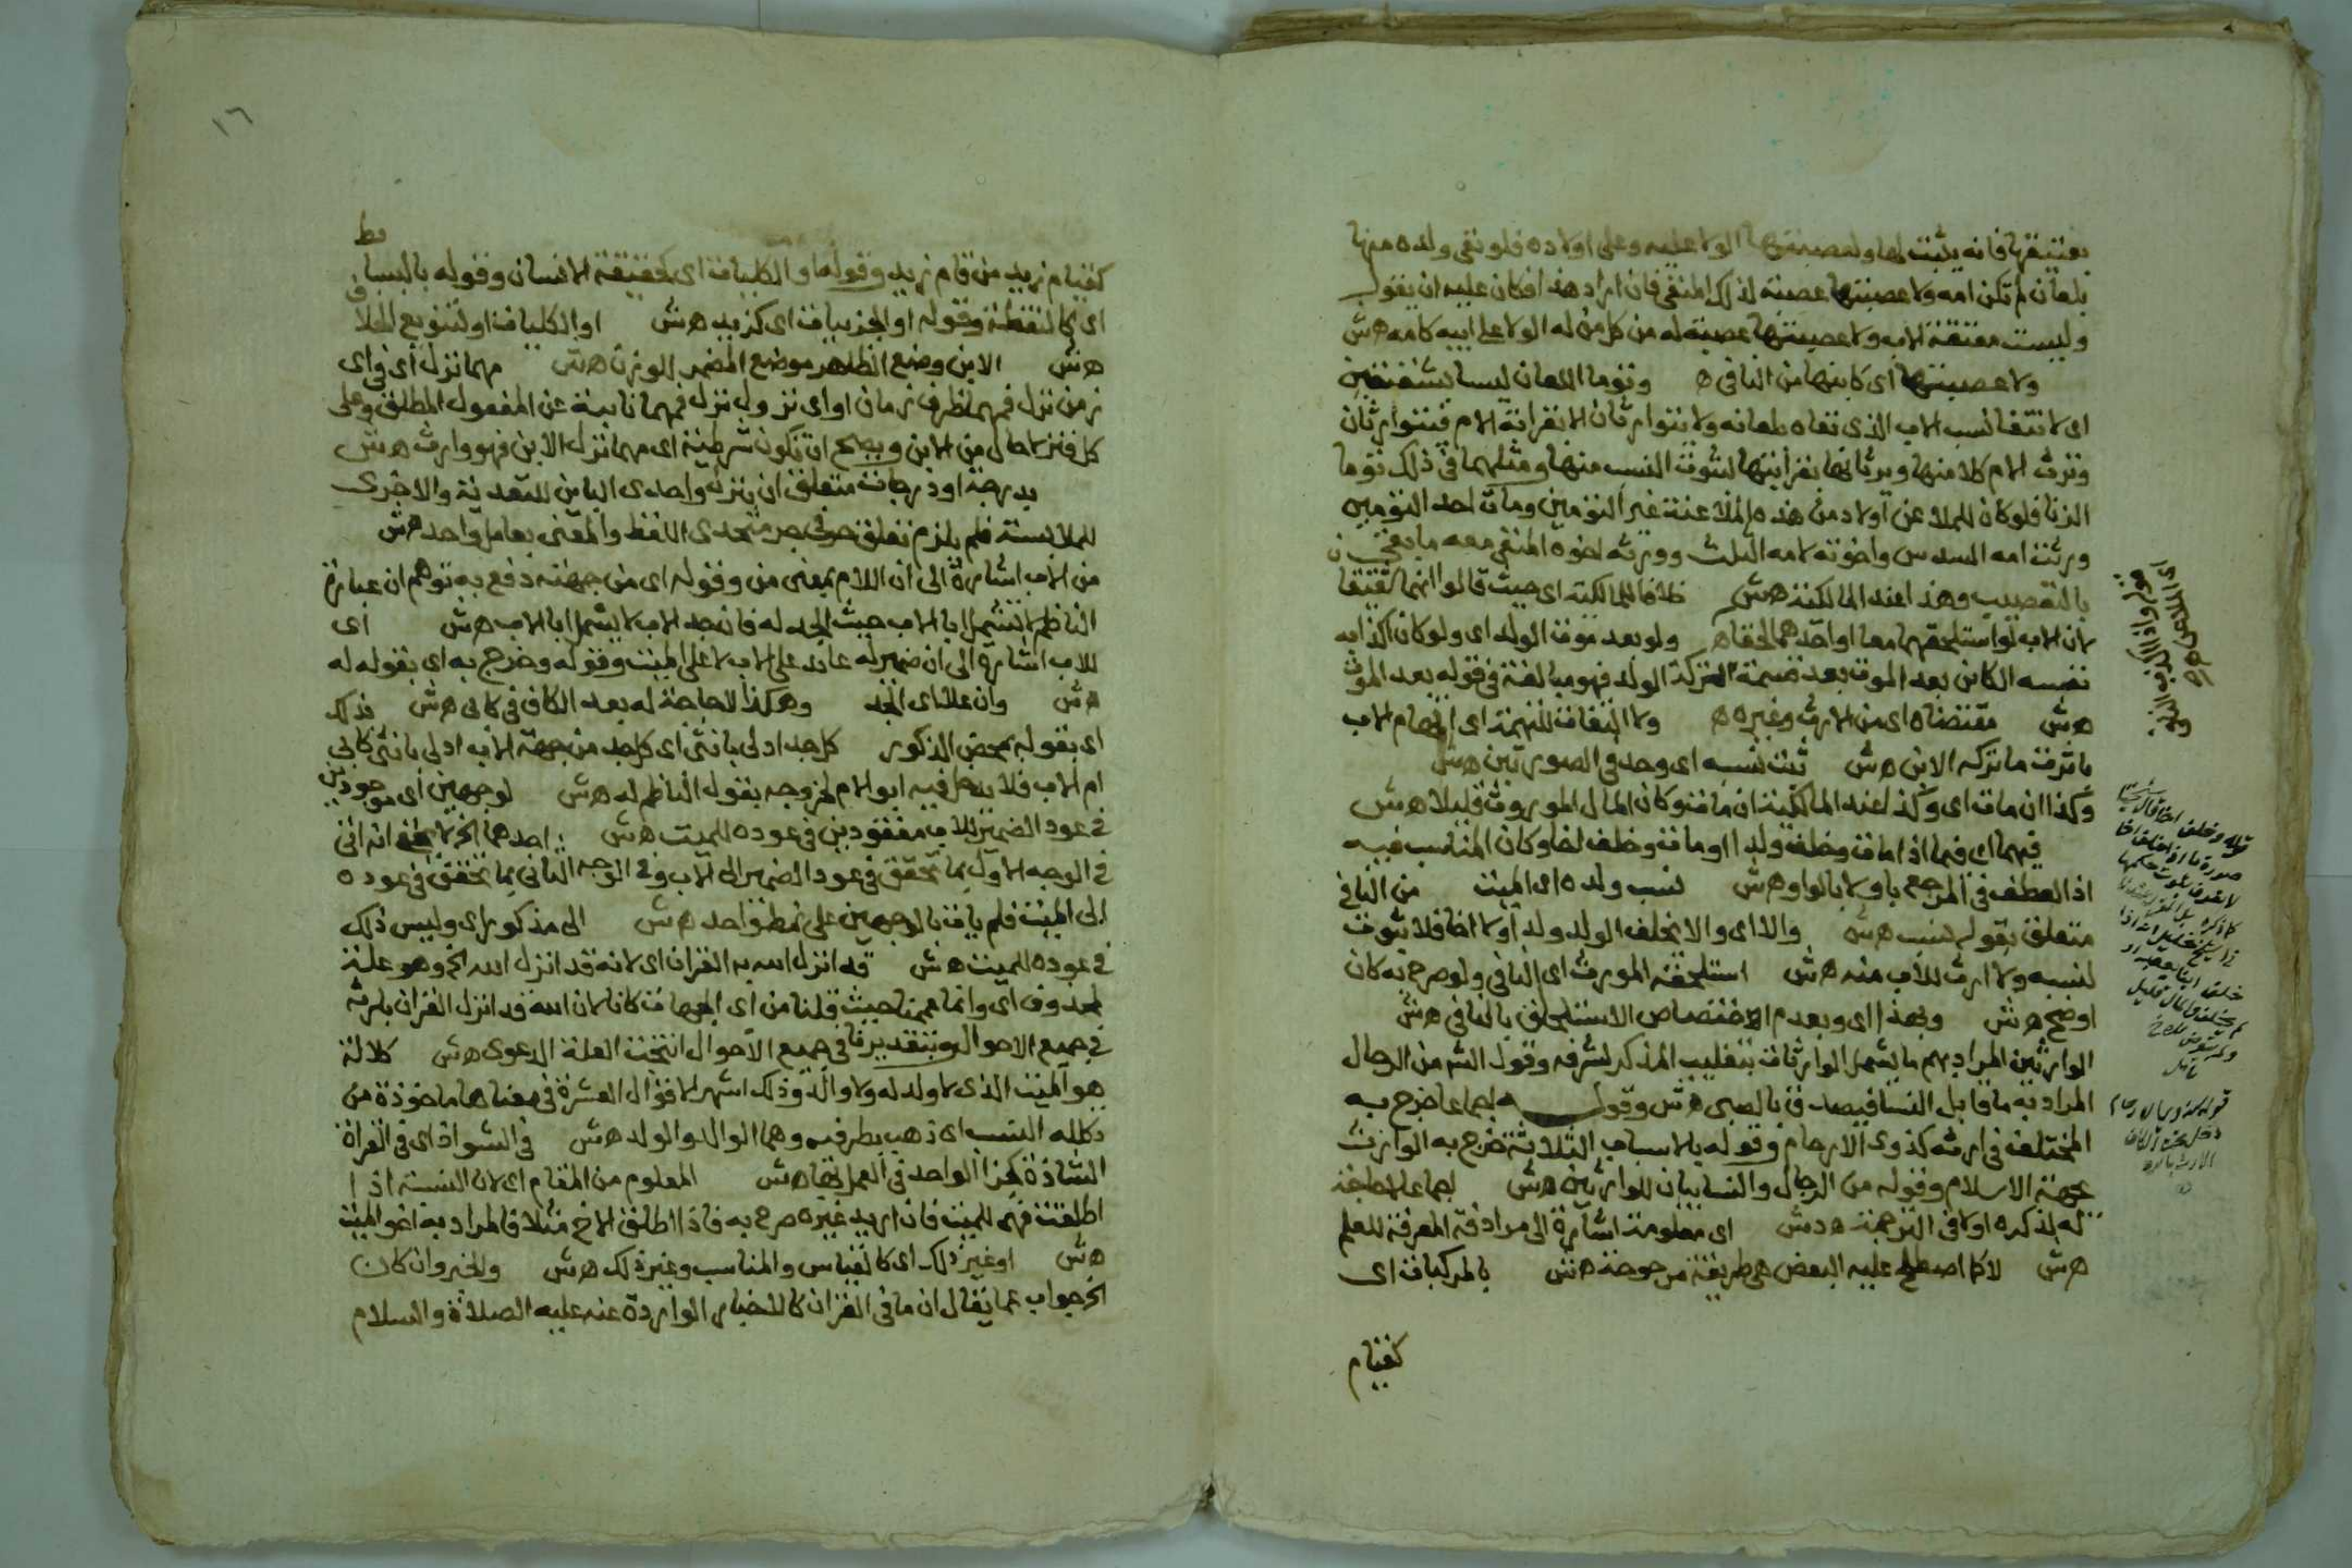 بعتقها فانه يثبت لها ولعصبتها الولا عليه وعلى اولاده فلو نفى ولده منها
بلعان لم تكن امه ولا عصبتها عصبة لذلك المنفي فان اراد هذا فكان عليه ان يقول
وليست معتقة الاب ولا عصبتها عصبة له من كل من له الولا على ابيه كامه هش
ولا عصبتها اى كابنها من الباقى ه وتوما اللعان ليسا بشقيقين
اى لانتفا نسب الاب الذى نفاه بلعانه ولا يتوارثان الا بقرابة الام فيتوارثان
وترث الام كلا منهما ويرثانها بقرابتها لثبوت النسب منها ومثلهما فى ذلك توما
الزنا فلو كان للملاعن اولاد من هذه الملاعنة غير التومين ومات احد التومين
ورثت امه السدس واخوته لامه الثلث وورثه اخوه المنفى معه ما بقى
بالتعصيب وهذا عند المالكية هش خلافا للمالكية اى حيث قالوا انهما شقيقان
لان الاب لو استلحقهما معا او احدهما لحقاه ولو بعد موت الولد اى ولو كان اكذابه
نفسه الكائن بعد الموت بعد قسمة التركة الولد فهو مبالغة فى قوله بعد الموت
هش مقتضاه اى من الارث وغيره ه ولا التفات للتهمة اى اتهام الاب
بانه ترك ما تركه الابن هش ثبت نسبه اى وحد فى الصورتين هش
وكذا ان مات اى وكذا عند المالكية ان مات وكان المال الموروث قليلا هش
فيهما اى فيما اذا مات وخلف ولدا او مات وخلف اخا وكان المناسب فيه
اذ العطف فى المرجع باو لا بالواو هش نسب ولده اى الميت من النافى
متعلق بقوله نسب هش والا اى والا يخلف الولد ولدا ولا اخا فلا ثبوت
لنسبه ولا ارث للاب منه هش استلحقه المورث اى النافى ولو صرح به كان
اوضح هش وبهذا اى وبعدم اختصاص الاستلحاق بالنافى هش
الوارثين المراد بهم ما يشمل الوارثات بتغليب المذكر لشرفه وقول الش من الرجال
المراد به ما قابل النسا فيصدق بالصبى هش وقوله اجماعا خرج به
المختلف فى ارثه كذوى الارحام وقوله بالاسباب الثلاثة خرج به الوارث
بجهة الاسلام وقوله من الرجال والنسا بيان للوارثين هش اجماعا لا حاجة
له لذكره اولا فى الترجمة هش اى معلومة اشارة الى مرادفة المعرفة للعلم
هش لا كما اصطلح عليه البعض هى طريقة مرجوحة هش بالمركبات اى
كقيام
١٦
كقيام زيد من قام زيد وقوله او الكليات اى كحقيقة الانسان وقوله بالبسايط
اى كالنقطة وقوله او الجزييات اى كزيد هش او الكليات او لتنويع الخلاف
هش الابن وضع الظاهر موضع المضمر للوزن هش مهما نزل اى فى اى
زمن نزل فمهما ظرف زمان او اى نزول نزل فمهما نايبة عن المفعول المطلق وعلى
كل فنزل حال من الابن ويصح ان تكون شرطية اى مهما نزل الابن فهو وارث هش
بدرجة او درجات متعلق ان بنزل واحدى الباين للتعدية والاخرى
للملابسة فلم يلزم تعلق حرفى جر متحدى اللفظ والمعنى بعامل واحد هش
من الاب اشارة الى ان اللام بمعنى من وقوله اى من جهته دفع به توهم ان عبارة
الناظم لا تشمل ابا الاب حيث الجد له فان جد الاب لا يشمل ابا الاب هش اى
للاب اشارة الى ان ضمير له عايد على الاب لا على الميت وقوله وخرج به اى بقوله له
هش وان علا اى الجد وهكذا لا حاجة له بعد الكاف فى كابى هش فذلك
اى بقوله بمحض الذكور كل جد ادلى بانثى اى كل جد من جهة الاب ادلى بانثى كابى
ام الاب فلا يدخل فيه ابو الام لخروجه بقول الناظم له هش لوجهين اى موجودين
فى عود الضمير للاب مفقودين فى عوده للميت هش احدهما الخ لا يخفى انه اتى
فى الوجه الاول بما تحقق فى عود الضمير الى الاب وفى الوجه الثانى بما تحقق فى عوده
الى الميت فلم يات بالوجهين على نمط واحد هش الى مذكور اى وليس ذلك
فى عوده للميت هش قد انزل الله به القران اى لانه قد انزل الله الخ وهو علة
لمحذوف اى وانما عممنا حيث قلنا من اى الجهات كانا لان الله قد انزل القران بارثه
فى جميع الاحوال وبتقديرنا فى جميع الاحوال انتجت العلة الدعوى هش كلالة
هو الميت الذى لا ولد له ولا والد وذلك اشهر الاقوال العشرة فى معناها ماخوذة من
تكلله النسب اى ذهب بطرفيه وهما الوالد والولد هش فى الشواذ اى فى القراة
الشاذة كخبر الواحد فى العمل بها هش المعلوم من المقام اى لان النسبة اذا
اطلقت فهى للميت فان اريد غيره صرح به فاذا اطلق الاخ مثلا فالمراد به اخو الميت
هش او غير ذلك اى كالقياس والمناسب وغير ذلك هش والخبر وان كان
الخ جواب عما يقال ان ما فى القران كالاخبار الواردة عنه عليه الصلاة والسلام